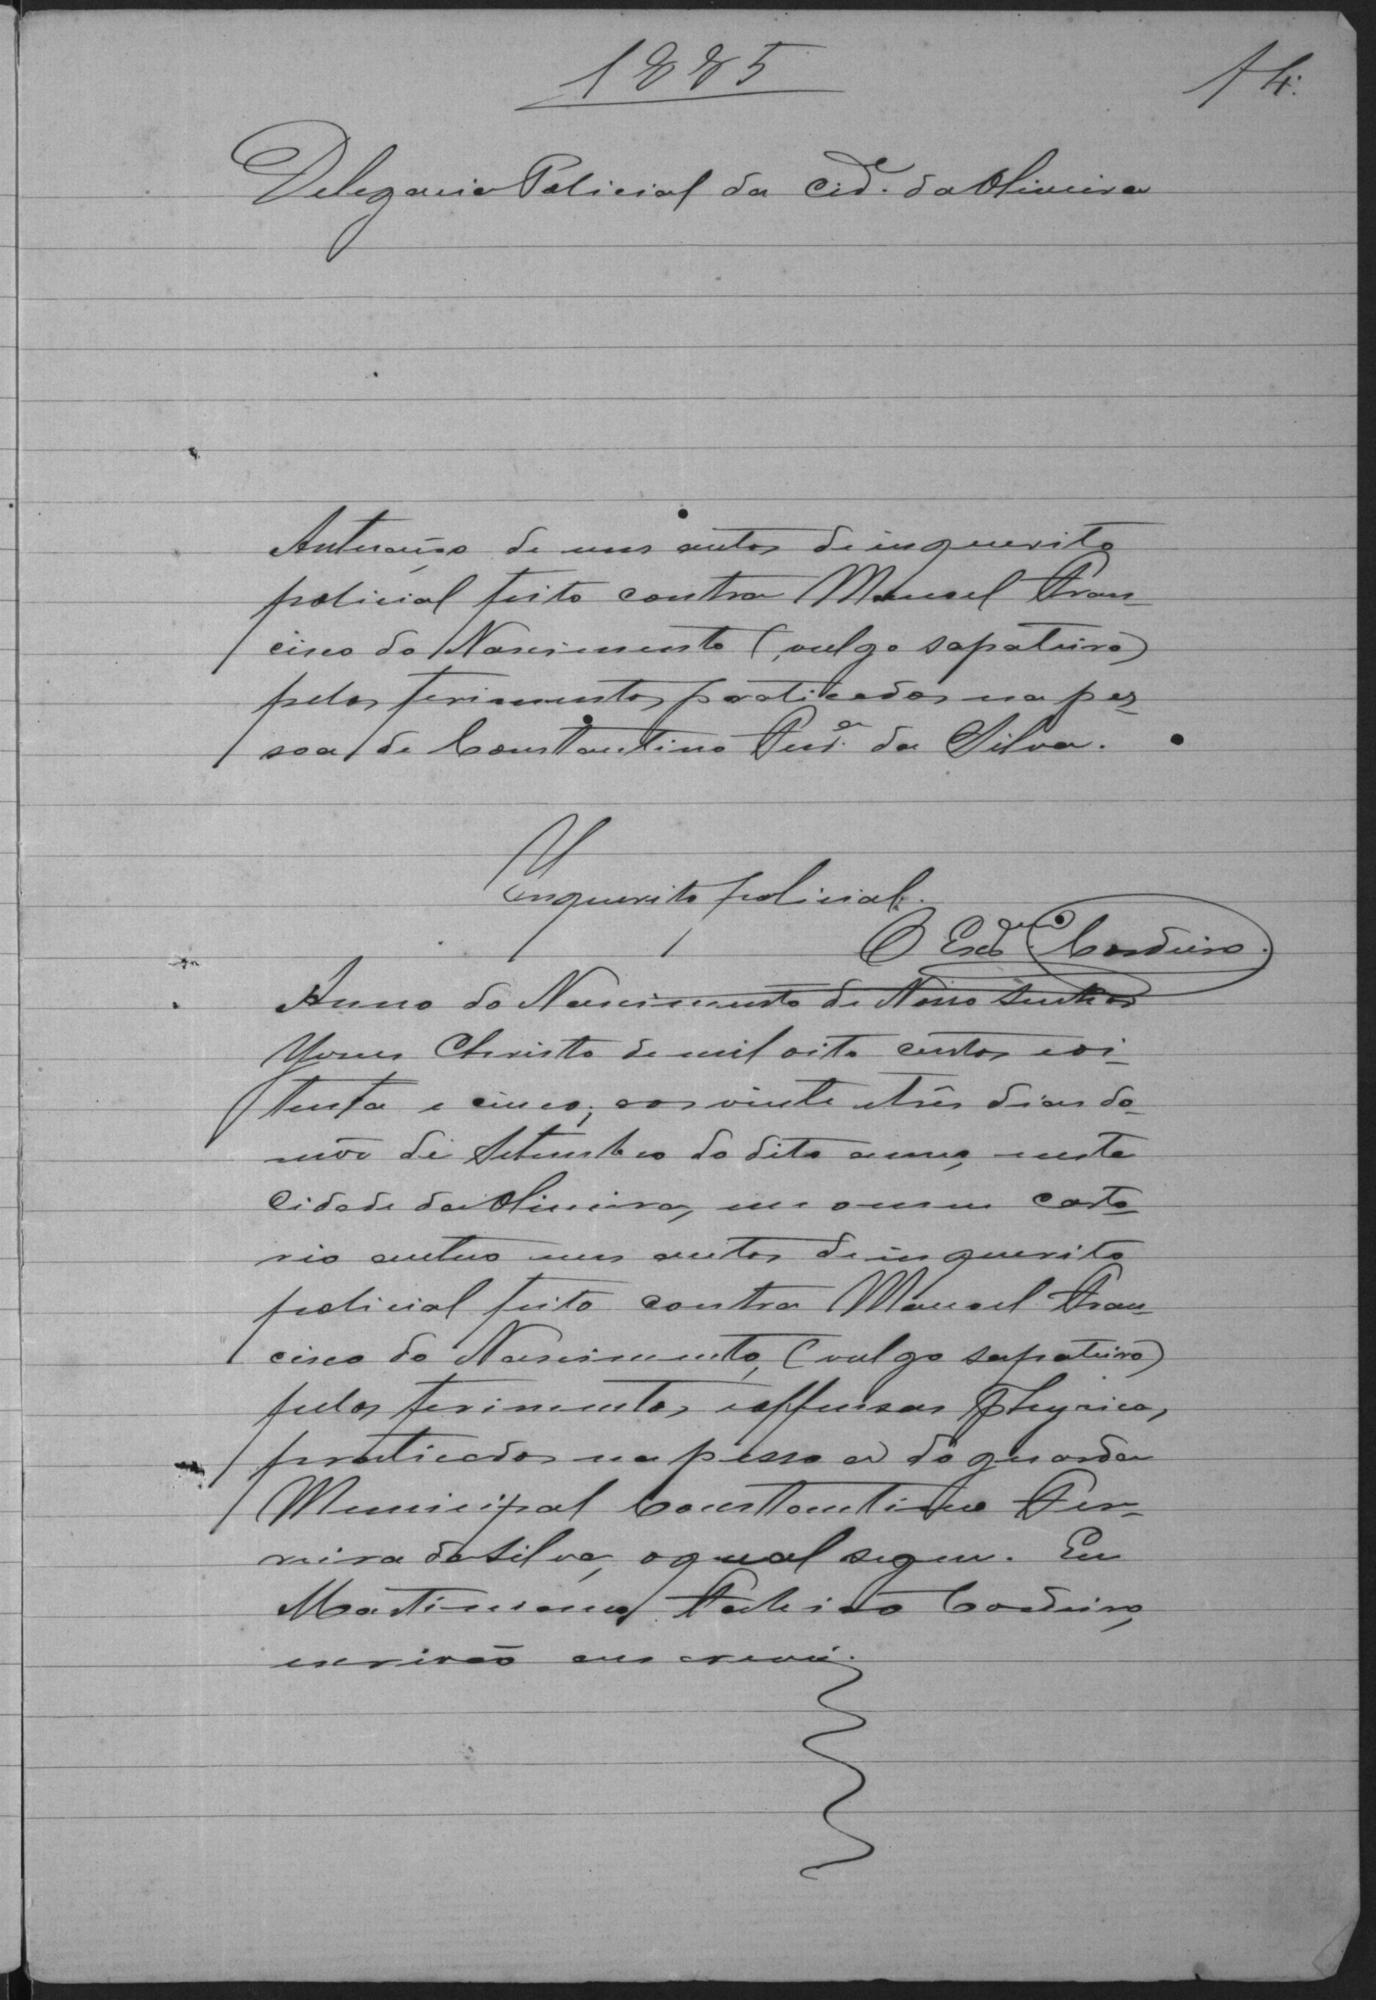 1885
f 4.
Delegacia Policial da Cid.e da Oliveira
Autuação de uns autos de inquerito
policial feito contra Manoel Fran-
cisco do Nascimento (vulgo sapateiro)
pelos ferimentos praticados na pes-
soa de Constantino Ferr.a da Silva.
Inquerito policial.
O Escr.am Cordeiro.
Anno do Nascimento de Nosso Senhor
Jesus Christo de mil oito centos e oi-
tenta e cinco, aos vinte e três dias do
mês de Setembro do dito anno, nesta
Cidade da Oliveira, em o meu carto-
rio autuo uns autos de inquerito
policial feito contra Manoel Fran-
cisco do Nascimento, (vulgo sapateiro)
pelos ferimentos e offensas physicas,
praticados na pessoa do guarda
Municipal Constantino Fer-
reira da Silva, o qual segue. Eu
Martiniano Cordeiro,
escrivão que escrevi.